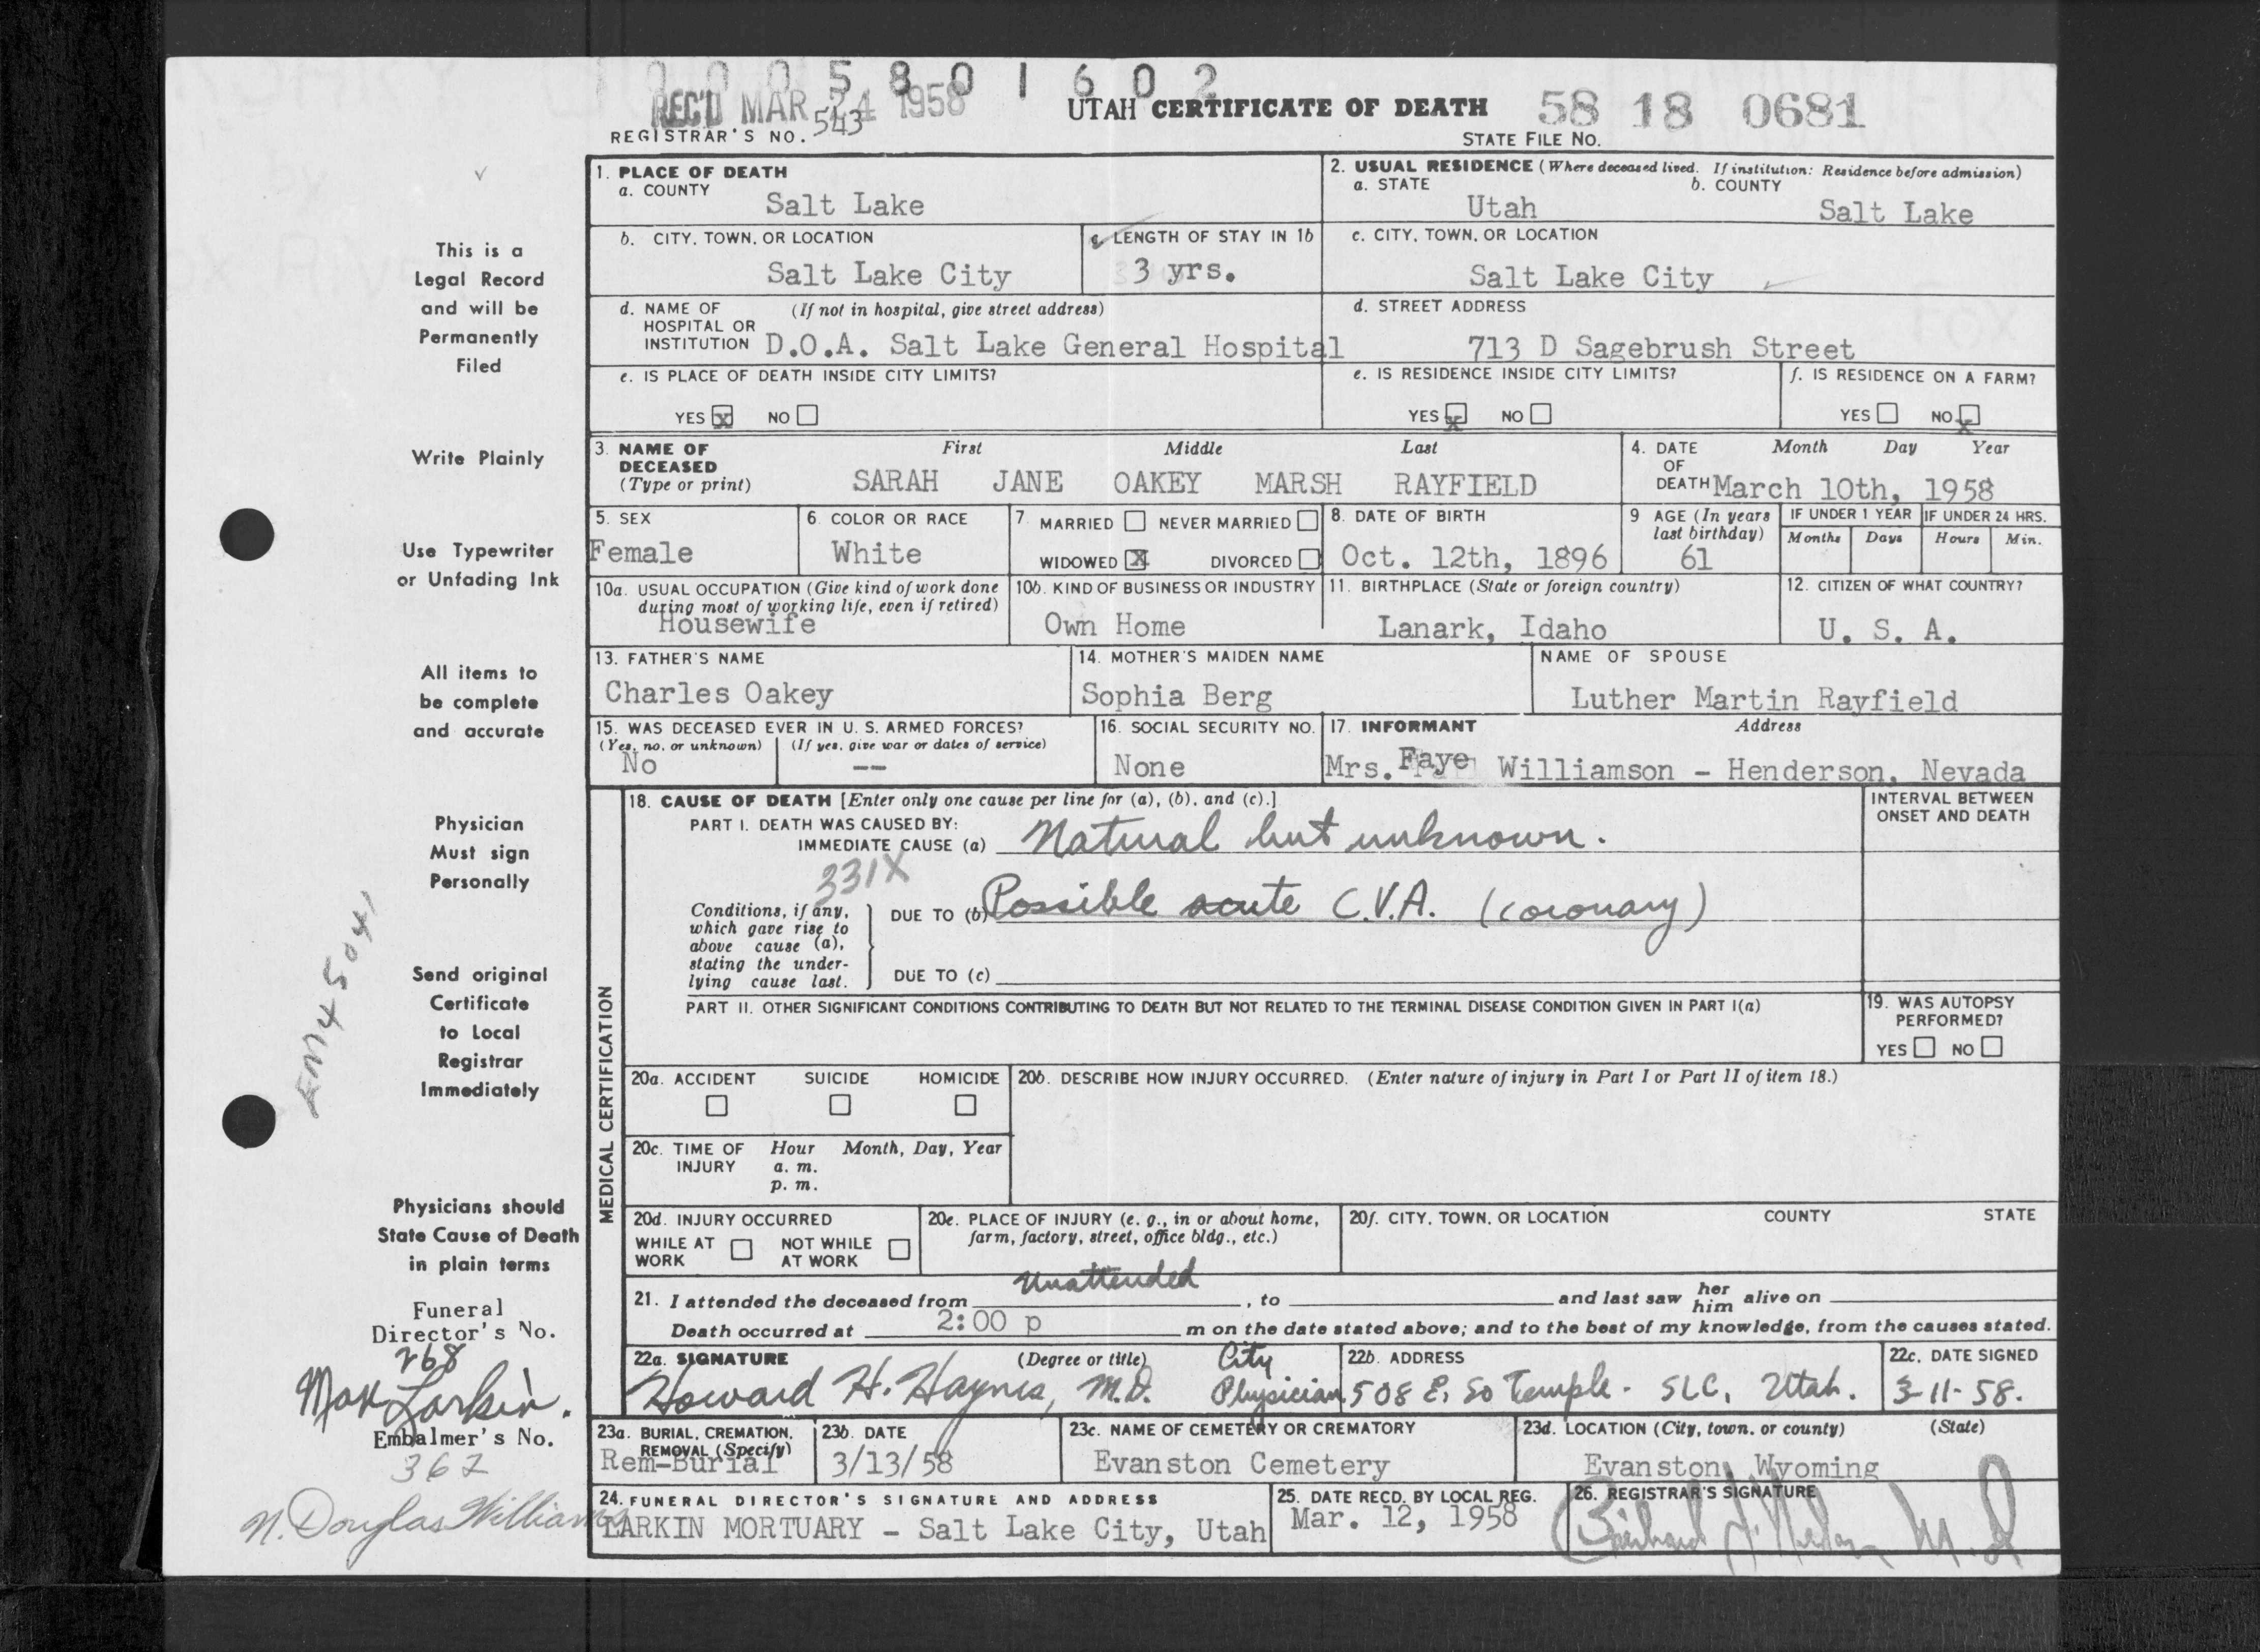 0 0 0 5 8 0 1 6 0 2
REC'D MAR 24 1958
REGISTRAR'S NO. 543
UTAH CERTIFICATE OF DEATH
58 18 0681
STATE FILE NO.
This is a
Legal Record
and will be
Permanently
Filed
Write Plainly
Use Typewriter
or Unfading Ink
All items to
be complete
and accurate
Physician
Must sign
Personally
Send original
Certificate
to Local
Registrar
Immediately
Physicians should
State Cause of Death
in plain terms
Funeral
Director's No.
268
Max Larkin.
Embalmer's No.
362
N. Douglas Williams
1. PLACE OF DEATH
a. COUNTY
Salt Lake
2. USUAL RESIDENCE (Where deceased lived. If institution: Residence before admission)
a. STATE b. COUNTY
Utah Salt Lake
b. CITY, TOWN, OR LOCATION
Salt Lake City
c. LENGTH OF STAY IN 1b
3 yrs.
c. CITY, TOWN, OR LOCATION
Salt Lake City
d. NAME OF (If not in hospital, give street address)
HOSPITAL OR
INSTITUTION D.O.A. Salt Lake General Hospital
d. STREET ADDRESS
713 D Sagebrush Street
e. IS PLACE OF DEATH INSIDE CITY LIMITS?
YES X NO
e. IS RESIDENCE INSIDE CITY LIMITS?
YES X NO
f. IS RESIDENCE ON A FARM?
YES NO X
3. NAME OF First Middle Last
DECEASED
(Type or print) SARAH JANE OAKEY MARSH RAYFIELD
4. DATE Month Day Year
OF
DEATH March 10th, 1958
5. SEX
Female
6. COLOR OR RACE
White
7. MARRIED NEVER MARRIED
WIDOWED X DIVORCED
8. DATE OF BIRTH
Oct. 12th, 1896
9 AGE (In years
last birthday)
61
IF UNDER 1 YEAR IF UNDER 24 HRS.
Months Days Hours Min.
10a. USUAL OCCUPATION (Give kind of work done
during most of working life, even if retired)
Housewife
10b. KIND OF BUSINESS OR INDUSTRY
Own Home
11. BIRTHPLACE (State or foreign country)
Lanark, Idaho
12. CITIZEN OF WHAT COUNTRY?
U. S. A.
13. FATHER'S NAME
Charles Oakey
14. MOTHER'S MAIDEN NAME
Sophia Berg
NAME OF SPOUSE
Luther Martin Rayfield
15. WAS DECEASED EVER IN U. S. ARMED FORCES?
(Yes, no, or unknown) (If yes, give war or dates of service)
No --
16. SOCIAL SECURITY NO.
None
17. INFORMANT Address
Mrs. Faye Williamson - Henderson, Nevada
MEDICAL CERTIFICATION
18. CAUSE OF DEATH [Enter only one cause per line for (a), (b), and (c).]
PART I. DEATH WAS CAUSED BY:
IMMEDIATE CAUSE (a) Natural but unknown.
331X
Conditions, if any,
which gave rise to
above cause (a),
stating the under-
lying cause last.
DUE TO (b) Possible acute C.V.A. (coronary)
DUE TO (c)
INTERVAL BETWEEN
ONSET AND DEATH
PART II. OTHER SIGNIFICANT CONDITIONS CONTRIBUTING TO DEATH BUT NOT RELATED TO THE TERMINAL DISEASE CONDITION GIVEN IN PART I(a)
19. WAS AUTOPSY
PERFORMED?
YES NO
20a. ACCIDENT SUICIDE HOMICIDE
20b. DESCRIBE HOW INJURY OCCURRED. (Enter nature of injury in Part I or Part II of item 18.)
20c. TIME OF Hour Month, Day, Year
INJURY a. m.
p. m.
20d. INJURY OCCURRED
WHILE AT NOT WHILE
WORK AT WORK
20e. PLACE OF INJURY (e. g., in or about home,
farm, factory, street, office bldg., etc.)
20f. CITY, TOWN, OR LOCATION COUNTY STATE
Unattended
21. I attended the deceased from , to and last saw her him alive on
Death occurred at 2:00 p m on the date stated above; and to the best of my knowledge, from the causes stated.
22a. SIGNATURE (Degree or title)
Howard H. Haynes, M.D. City Physician
22b. ADDRESS
508 E. So Temple - SLC, Utah.
22c. DATE SIGNED
3-11-58.
23a. BURIAL, CREMATION,
REMOVAL (Specify)
Rem-Burial
23b. DATE
3/13/58
23c. NAME OF CEMETERY OR CREMATORY
Evanston Cemetery
23d. LOCATION (City, town, or county) (State)
Evanston, Wyoming
24. FUNERAL DIRECTOR'S SIGNATURE AND ADDRESS
LARKIN MORTUARY - Salt Lake City, Utah
25. DATE RECD. BY LOCAL REG.
Mar. 12, 1958
26. REGISTRAR'S SIGNATURE
M.D